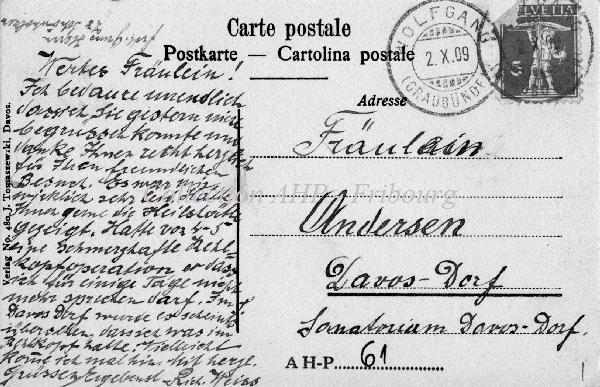 Carte postale
Postkarte — Cartolina postale
WOLFGANG
2.X.09
(GRAUBÜNDEN)
HELVETIA
5
Adresse
Fräulein
Andersen
Davos-Dorf
Sanatorium Davos-Dorf.
A H-P. 61
Wertes Fräulein!
Ich bedaure unendlich
dass ich Sie gestern nicht
begrüssen konnte und
danke Ihnen recht herzlich
für Ihren freundlichen
Besuch. Es war mir
wirklich sehr leid. Hätte
Ihnen gerne die Heilstätte
gezeigt. Hatte vor 4-5
eine Schmerzhafte Kehl-
kopfoperation, so dass
ich für einige Tage nicht
mehr sprechen darf. Im
Davos Dorf wurde es scheint's
übersehen, dass ich was im
Kehlkopf hatte. Vielleicht
komme ich mal hin. Mit herzl.
Grüssen Ergebenst Rich. Weiss
Verlag No. 480. J. Tomaszewski, Davos.
Collection AHP - Fribourg